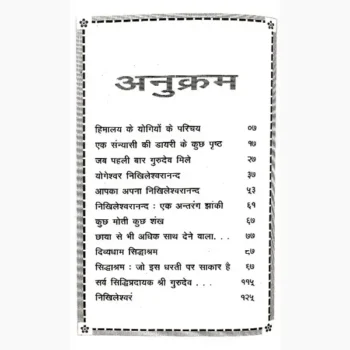 अनुक्रम
हिमालय के योगियों के परिचय ०७
एक संन्यासी की डायरी के कुछ पृष्ठ १७
जब पहली बार गुरुदेव मिले २७
योगेश्वर निखिलेश्वरानन्द ३७
आपका अपना निखिलेश्वरानन्द ५३
निखिलेश्वरानन्द : एक अन्तरंग झांकी ६१
कुछ मोती कुछ शंख ६७
छाया से भी अधिक साथ देने वाला. . . ७७
दिव्यधाम सिद्धाश्रम ८७
सिद्धाश्रम : जो इस धरती पर साकार है ९७
सर्व सिद्धिप्रदायक श्री गुरुदेव . . . ११५
निखिलेश्वरं १२५